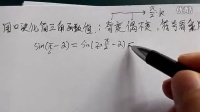 用口诀化简三角函数值：奇变偶不变，符号看象
sin(π-2)=sin(2·π/2-2)=